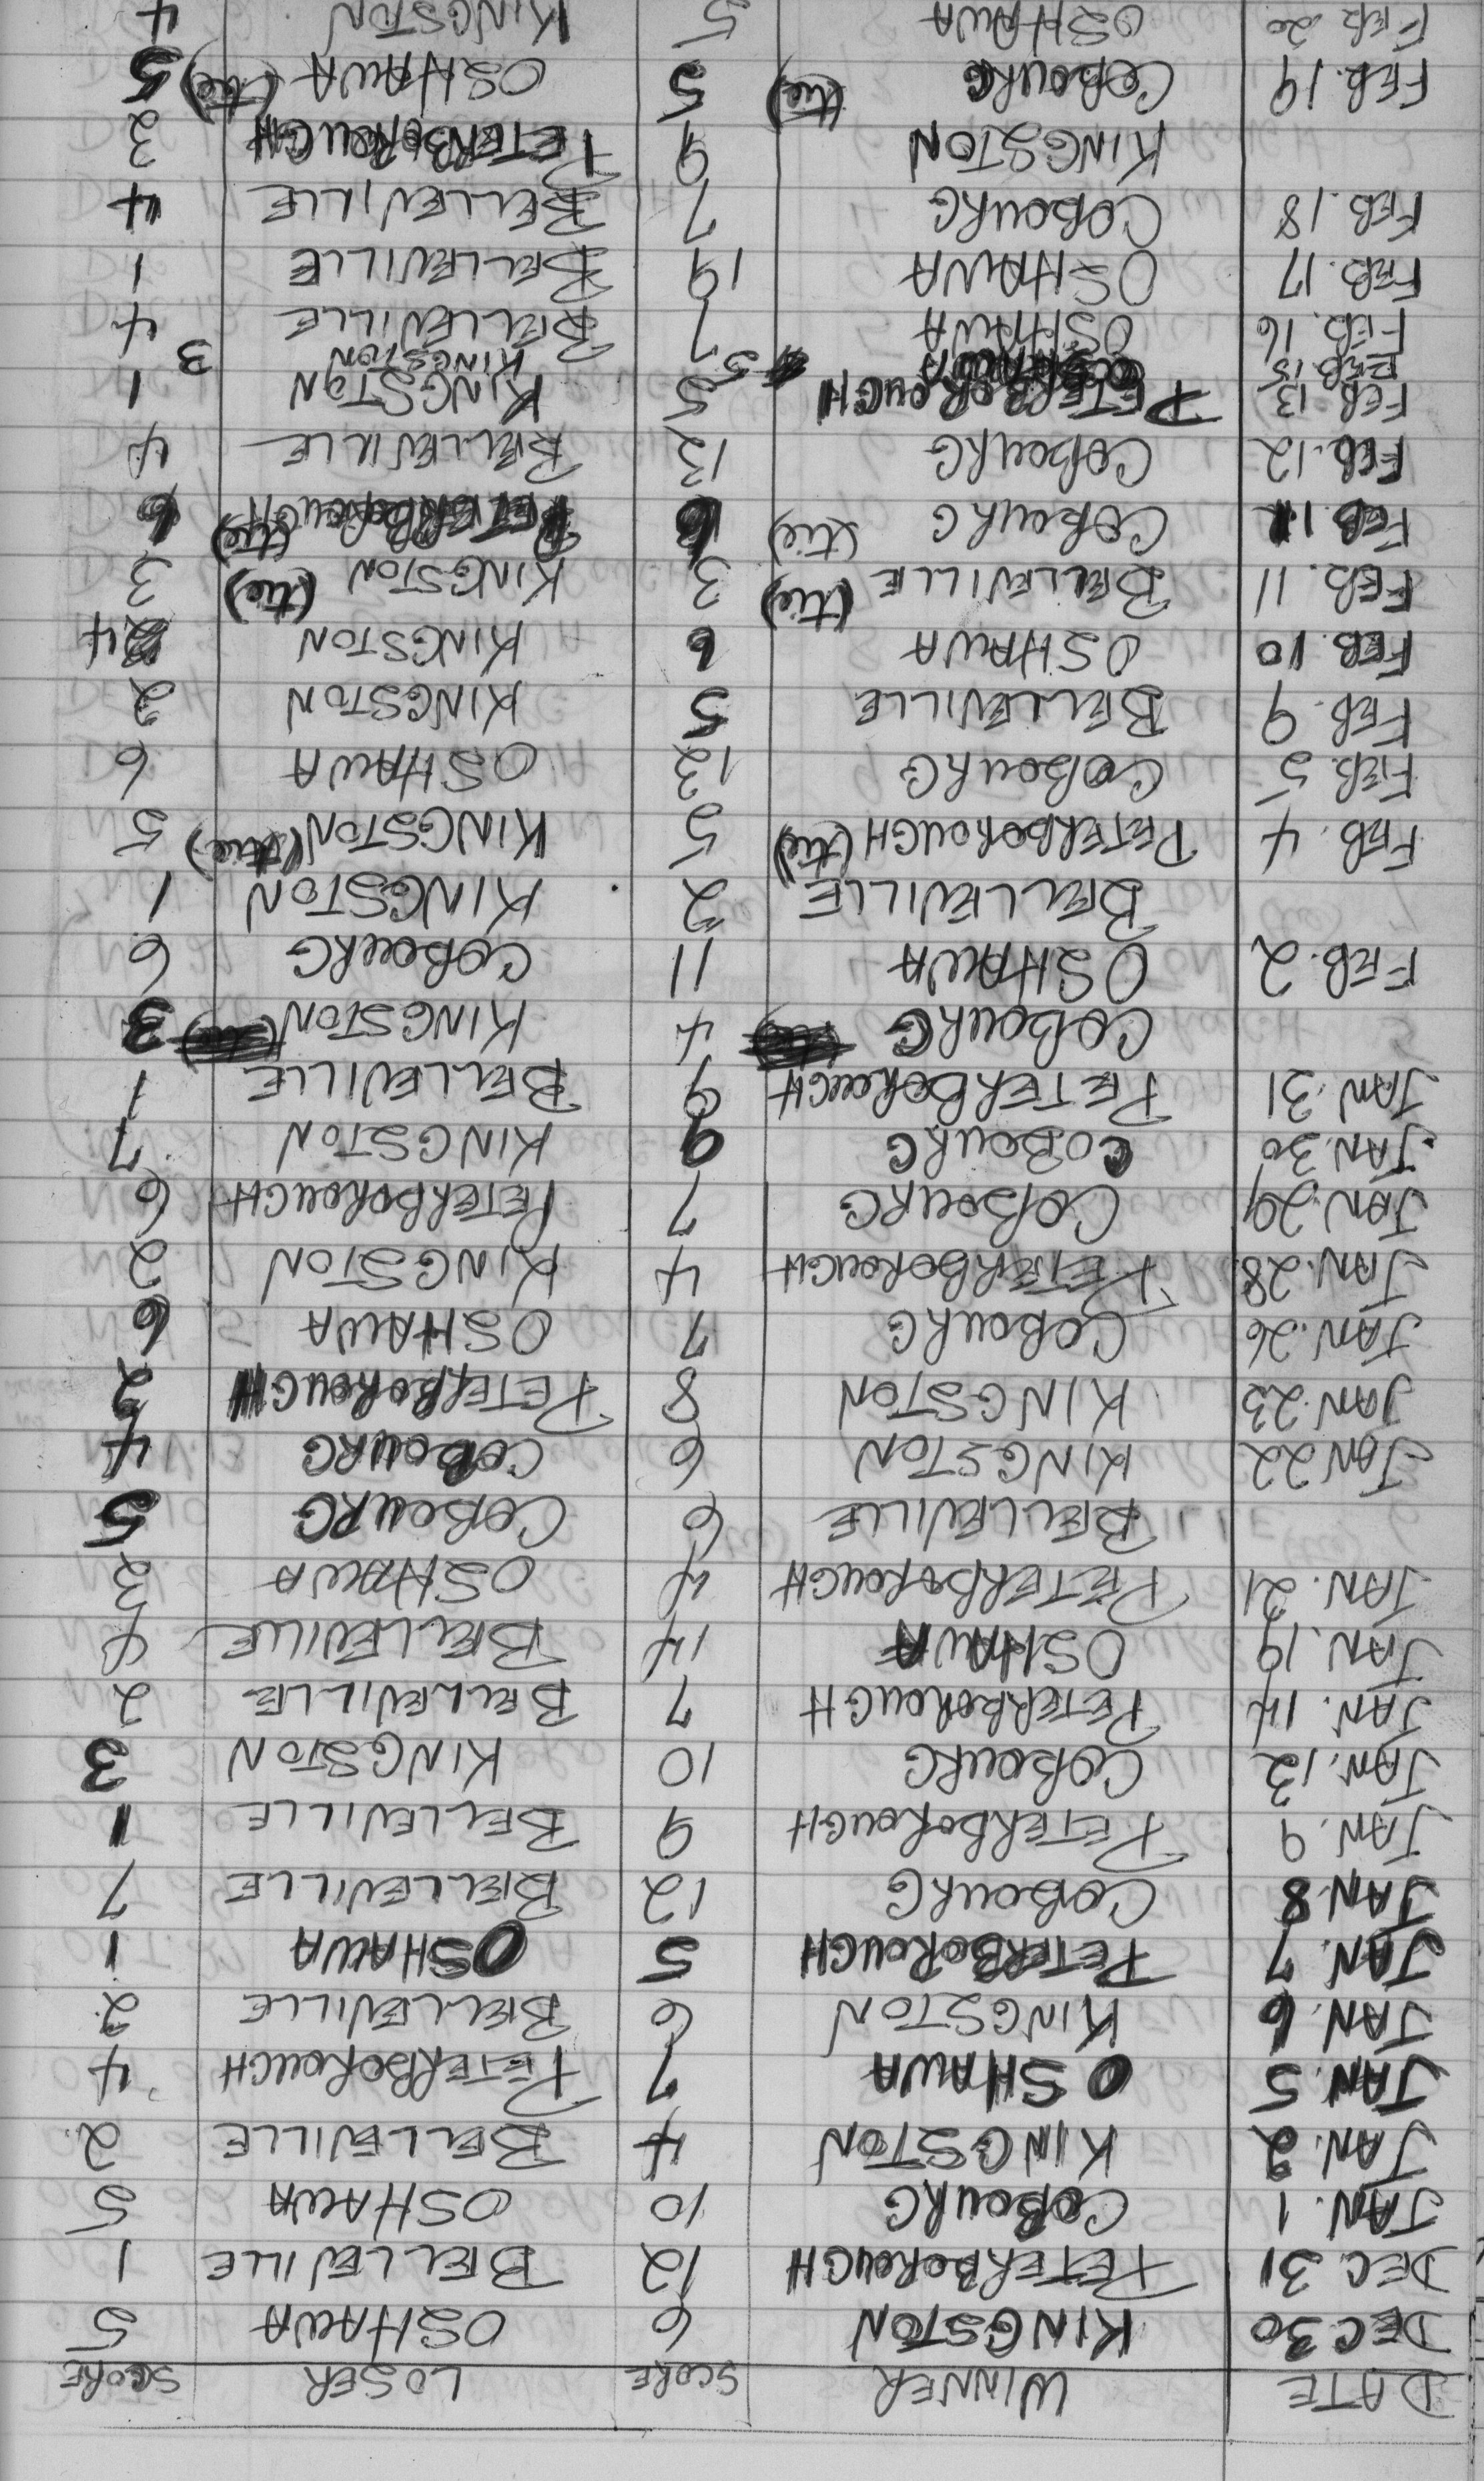 DATE WINNER SCORE LOSER SCORE
DEC. 30 KINGSTON 6 OSHAWA 5
DEC. 31 PETERBOROUGH 12 BELLEVILLE 1
JAN. 1 COBOURG 10 OSHAWA 5
JAN. 2 KINGSTON 4 BELLEVILLE 2
JAN. 5 OSHAWA 7 PETERBOROUGH 4
JAN. 6 KINGSTON 6 BELLEVILLE 2
JAN. 7 PETERBOROUGH 5 OSHAWA 1
JAN. 8 COBOURG 12 BELLEVILLE 7
JAN. 9 PETERBOROUGH 9 BELLEVILLE 1
JAN. 12 COBOURG 10 KINGSTON 3
JAN. 14 PETERBOROUGH 7 BELLEVILLE 2
JAN. 19 OSHAWA 14 BELLEVILLE
JAN. 21 PETERBOROUGH 4 OSHAWA 3
BELLEVILLE 6 COBOURG 5
JAN 22 KINGSTON 6 COBOURG 4
JAN. 23 KINGSTON 8 PETERBOROUGH 2
JAN. 26 COBOURG 7 OSHAWA 6
JAN. 28 PETERBOROUGH 4 KINGSTON 2
JAN. 29 COBOURG 7 PETERBOROUGH 6
JAN. 30 COBOURG 9 KINGSTON 7
JAN. 31 PETERBOROUGH 9 BELLEVILLE 1
COBOURG 4 KINGSTON 3
FEB. 2 OSHAWA 11 COBOURG 6
BELLEVILLE 2 KINGSTON 1
FEB. 4 PETERBOROUGH (tie) 5 KINGSTON (tie) 5
FEB. 5 COBOURG 12 OSHAWA 6
FEB. 9 BELLEVILLE 5 KINGSTON 2
FEB. 10 OSHAWA 6 KINGSTON 4
FEB. 11 BELLEVILLE (tie) 3 KINGSTON (tie) 3
FEB. 11 COBOURG (tie) 6 PETERBOROUGH (tie) 6
FEB. 12 COBOURG 13 BELLEVILLE 4
FEB. 13 PETERBOROUGH 5 KINGSTON 1
FEB. 15 5 KINGSTON 3
FEB. 16 OSHAWA 7 BELLEVILLE 4
FEB. 17 OSHAWA 19 BELLEVILLE 1
FEB. 18 COBOURG 7 BELLEVILLE 4
KINGSTON 9 PETERBOROUGH 2
FEB. 19 COBOURG (tie) 5 OSHAWA (tie) 5
FEB. 20 OSHAWA 5 KINGSTON 4